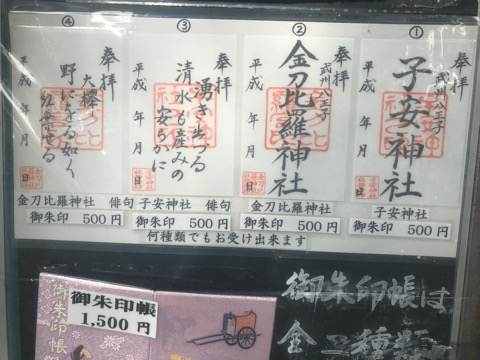 ①
奉拝
武州八王子
子安神社
平成 年 月 日
子安神社
御朱印 500円
②
奉拝
武州八王子
金刀比羅神社
平成 年 月 日
金刀比羅神社
御朱印 500円
③
奉拝
湧き出づる
清水も産みの
安らかに
平成 年 月 日
子安神社 俳句
御朱印 500円
④
奉拝
大欅
野にする如く
平成 年 月 日
金刀比羅神社 俳句
御朱印 500円
何種類でもお受け出来ます
御朱印帳
1,500円
御朱印帳
御朱印帳は